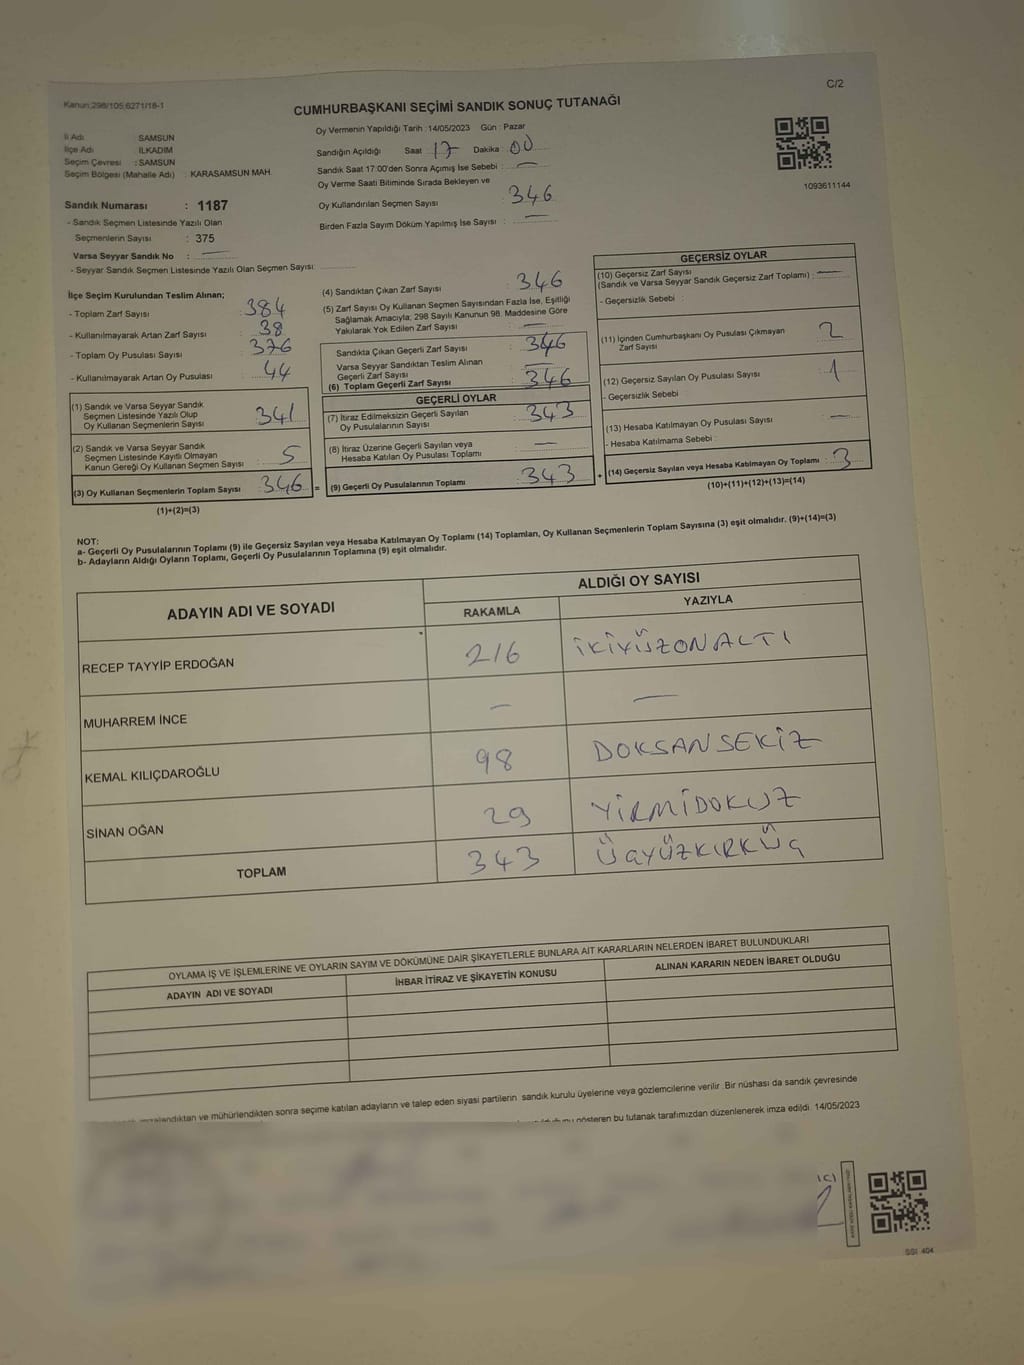 C/2
Kanun:298/105,6271/18-1
CUMHURBAŞKANI SEÇİMİ SANDIK SONUÇ TUTANAĞI
İl Adı : SAMSUN
İlçe Adı : İLKADIM
Seçim Çevresi : SAMSUN
Seçim Bölgesi (Mahalle Adı) : KARASAMSUN MAH.
Oy Vermenin Yapıldığı Tarih :14/05/2023 Gün : Pazar
Sandığın Açıldığı Saat 17 Dakika : 00
Sandık Saat 17:00'den Sonra Açılmış İse Sebebi : —
Oy Verme Saati Bitiminde Sırada Bekleyen ve
Oy Kullandırılan Seçmen Sayısı : 346
Birden Fazla Sayım Döküm Yapılmış İse Sayısı : —
1093611144
Sandık Numarası : 1187
- Sandık Seçmen Listesinde Yazılı Olan
Seçmenlerin Sayısı : 375
Varsa Seyyar Sandık No : —
- Seyyar Sandık Seçmen Listesinde Yazılı Olan Seçmen Sayısı:
İlçe Seçim Kurulundan Teslim Alınan;
- Toplam Zarf Sayısı : 384
- Kullanılmayarak Artan Zarf Sayısı : 38
- Toplam Oy Pusulası Sayısı : 376
- Kullanılmayarak Artan Oy Pusulası : 44
(1) Sandık ve Varsa Seyyar Sandık
Seçmen Listesinde Yazılı Olup
Oy Kullanan Seçmenlerin Sayısı : 341
(2) Sandık ve Varsa Seyyar Sandık
Seçmen Listesinde Kayıtlı Olmayan
Kanun Gereği Oy Kullanan Seçmen Sayısı : 5
(3) Oy Kullanan Seçmenlerin Toplam Sayısı : 346 =
(1)+(2)=(3)
(4) Sandıktan Çıkan Zarf Sayısı : 346
(5) Zarf Sayısı Oy Kullanan Seçmen Sayısından Fazla İse, Eşitliği
Sağlamak Amacıyla; 298 Sayılı Kanunun 98. Maddesine Göre
Yakılarak Yok Edilen Zarf Sayısı : —
Sandıkta Çıkan Geçerli Zarf Sayısı : 346
Varsa Seyyar Sandıktan Teslim Alınan
Geçerli Zarf Sayısı : —
(6) Toplam Geçerli Zarf Sayısı : 346
GEÇERLİ OYLAR
(7) İtiraz Edilmeksizin Geçerli Sayılan
Oy Pusulalarının Sayısı : 343
(8) İtiraz Üzerine Geçerli Sayılan veya
Hesaba Katılan Oy Pusulası Toplamı : —
(9) Geçerli Oy Pusulalarının Toplamı : 343 +
GEÇERSİZ OYLAR
(10) Geçersiz Zarf Sayısı
(Sandık ve Varsa Seyyar Sandık Geçersiz Zarf Toplamı) : —
- Geçersizlik Sebebi :
(11) İçinden Cumhurbaşkanı Oy Pusulası Çıkmayan
Zarf Sayısı : 2
(12) Geçersiz Sayılan Oy Pusulası Sayısı : 1
- Geçersizlik Sebebi :
(13) Hesaba Katılmayan Oy Pusulası Sayısı : —
- Hesaba Katılmama Sebebi :
(14) Geçersiz Sayılan veya Hesaba Katılmayan Oy Toplamı : 3
(10)+(11)+(12)+(13)=(14)
NOT:
a- Geçerli Oy Pusulalarının Toplamı (9) ile Geçersiz Sayılan veya Hesaba Katılmayan Oy Toplamı (14) Toplamları, Oy Kullanan Seçmenlerin Toplam Sayısına (3) eşit olmalıdır. (9)+(14)=(3)
b- Adayların Aldığı Oyların Toplamı, Geçerli Oy Pusulalarının Toplamına (9) eşit olmalıdır.
ADAYIN ADI VE SOYADI
ALDIĞI OY SAYISI
RAKAMLA YAZIYLA
RECEP TAYYİP ERDOĞAN 216 İKİYÜZONALTI
MUHARREM İNCE — —
KEMAL KILIÇDAROĞLU 98 DOKSANSEKİZ
SİNAN OĞAN 29 YİRMİDOKUZ
TOPLAM 343 ÜÇYÜZKIRKÜÇ
OYLAMA İŞ VE İŞLEMLERİNE VE OYLARIN SAYIM VE DÖKÜMÜNE DAİR ŞİKAYETLERLE BUNLARA AİT KARARLARIN NELERDEN İBARET BULUNDUKLARI
ADAYIN ADI VE SOYADI İHBAR İTİRAZ VE ŞİKAYETİN KONUSU ALINAN KARARIN NEDEN İBARET OLDUĞU
ve mühürlendikten sonra seçime katılan adayların ve talep eden siyasi partilerin sandık kurulu üyelerine veya gözlemcilerine verilir. Bir nüshası da sandık çevresinde
gösteren bu tutanak tarafımızdan düzenlenerek imza edildi. 14/05/2023
SSI 404